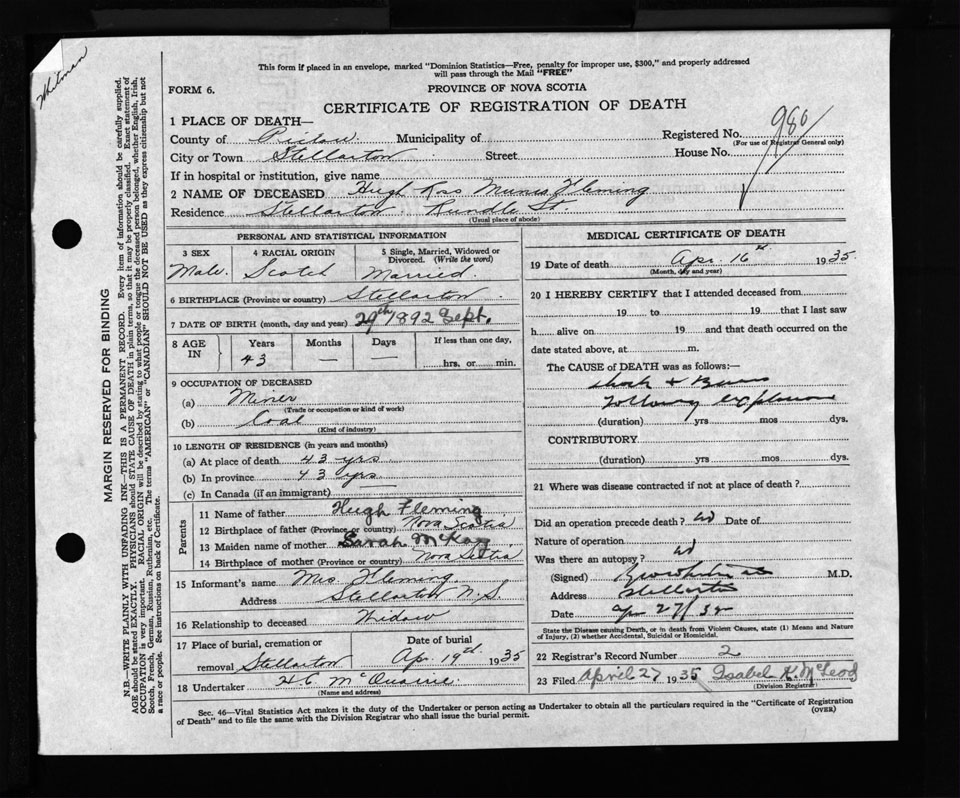 Whitman
This form if placed in an envelope, marked "Dominion Statistics—Free, penalty for improper use, $300," and properly addressed
will pass through the Mail "FREE"
FORM 6.
PROVINCE OF NOVA SCOTIA
CERTIFICATE OF REGISTRATION OF DEATH
1 PLACE OF DEATH—
County of Pictou Municipality of Registered No. 980
(For use of Registrar General only)
City or Town Stellarton Street House No.
If in hospital or institution, give name
2 NAME OF DECEASED Hugh Ross Munro Fleming
Residence Stellarton Rundle St.
(Usual place of abode)
PERSONAL AND STATISTICAL INFORMATION
3 SEX 4 RACIAL ORIGIN 5 Single, Married, Widowed or
Divorced. (Write the word)
Male. Scotch Married.
6 BIRTHPLACE (Province or country) Stellarton.
7 DATE OF BIRTH (month, day and year) 29th 1892 Sept.
8 AGE IN Years Months Days If less than one day,
43 — — hrs. or min.
9 OCCUPATION OF DECEASED
(a) Miner
(Trade or occupation or kind of work)
(b) Coal
(Kind of industry)
10 LENGTH OF RESIDENCE (in years and months)
(a) At place of death 43 yrs
(b) In province 43 yrs
(c) In Canada (if an immigrant)
Parents
11 Name of father Hugh Fleming
12 Birthplace of father (Province or country) Nova Scotia
13 Maiden name of mother Sarah McKay
14 Birthplace of mother (Province or country) Nova Scotia
15 Informant's name Mrs Fleming.
Address Stellarton N.S
16 Relationship to deceased Widow
17 Place of burial, cremation or Date of burial
removal Stellarton Apr. 19th 1935
18 Undertaker McQuarrie
(Name and address)
MEDICAL CERTIFICATE OF DEATH
19 Date of death Apr. 16th 1935.
(Month, day and year)
20 I HEREBY CERTIFY that I attended deceased from
19 to 19 that I last saw
h alive on 19 and that death occurred on the
date stated above, at m.
The CAUSE of DEATH was as follows:—
Shock & Burns
following explosion
(duration) yrs mos dys.
CONTRIBUTORY
(duration) yrs mos dys.
21 Where was disease contracted if not at place of death?
Did an operation precede death? no Date of
Nature of operation
Was there an autopsy? no
(Signed) M.D.
Address Stellarton
Date Apr 27/35
State the Disease causing Death, or in death from Violent Causes, state (1) Means and Nature
of Injury, (2) whether Accidental, Suicidal or Homicidal.
22 Registrar's Record Number 2
23 Filed April 27 1935 Isabel K. McLeod
(Division Registrar)
Sec. 46—Vital Statistics Act makes it the duty of the Undertaker or person acting as Undertaker to obtain all the particulars required in the "Certificate of Registration
of Death" and to file the same with the Division Registrar who shall issue the burial permit. (OVER)
MARGIN RESERVED FOR BINDING
N.B.—WRITE PLAINLY WITH UNFADING INK—THIS IS A PERMANENT RECORD. Every item of information should be carefully supplied.
AGE should be stated EXACTLY. PHYSICIANS should STATE CAUSE OF DEATH in plain terms, so that it may be properly classified. Exact statement of
OCCUPATION is very important. RACIAL ORIGIN will be described by stating to what people or tongue the deceased person belonged, whether English, Irish,
Scotch, French, German, Russian, Ruthenian, etc. The terms "AMERICAN" or "CANADIAN" SHOULD NOT BE USED as they express citizenship but not
a race or people. See instructions on back of Certificate.